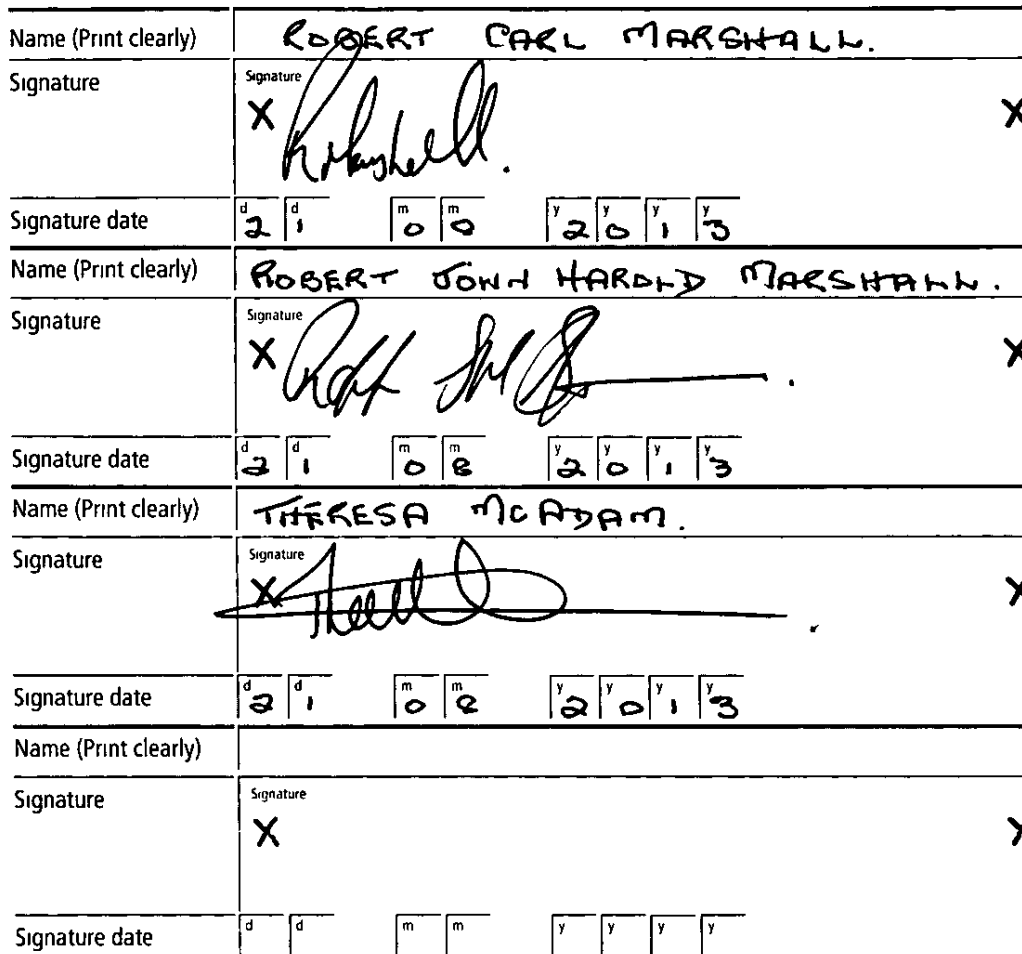 Name (Print clearly) ROBERT CARL MARSHALL.
Signature Signature
X R Marshall. X
Signature date d 2 d 1 m 0 m 8 y 2 y 0 y 1 y 3
Name (Print clearly) ROBERT JOHN HAROLD MARSHALL.
Signature Signature
X X
Signature date d 2 d 1 m 0 m 8 y 2 y 0 y 1 y 3
Name (Print clearly) THERESA MCADAM.
Signature Signature
X X
Signature date d 2 d 1 m 0 m 8 y 2 y 0 y 1 y 3
Name (Print clearly)
Signature Signature
X X
Signature date d d m m y y y y